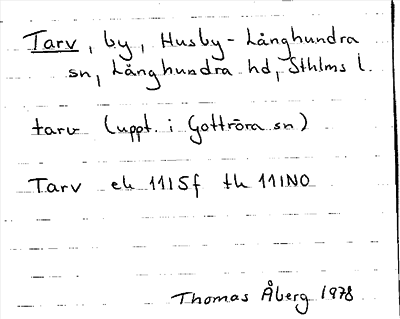 Tarv, by, Husby-Långhundra
sn, Långhundra hd, Sthlms l.
tarv (uppt. i Gottröra sn)
Tarv ek 11I5f tk 11INO
Thomas Åberg 1978